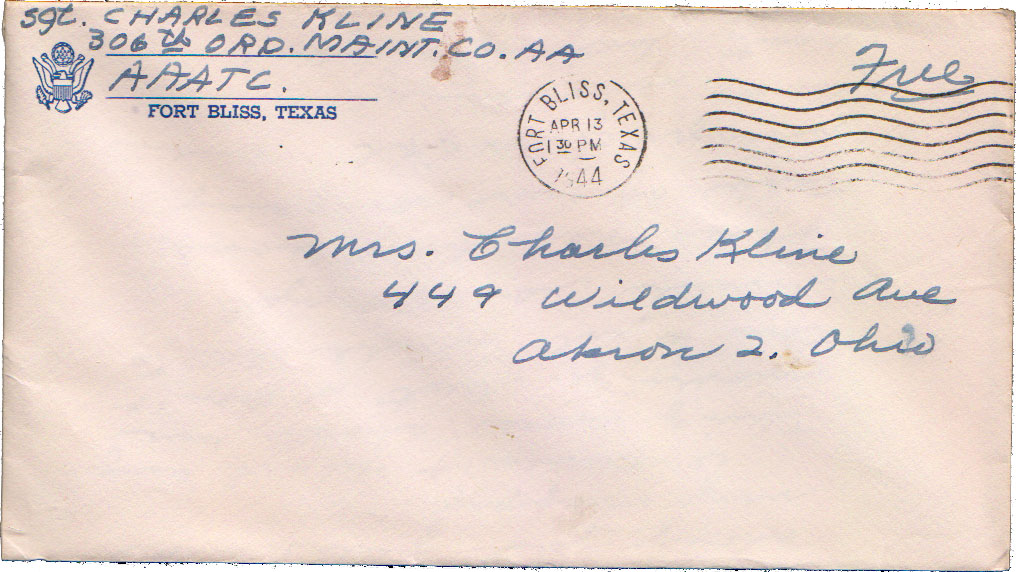 Sgt. CHARLES KLINE
306th ORD. MAINT. CO. AA
AAATC.
FORT BLISS, TEXAS
Free
FORT BLISS, TEXAS
APR 13
1 30 PM
1944
Mrs. Charles Kline
449 Wildwood Ave
Akron 2. Ohio